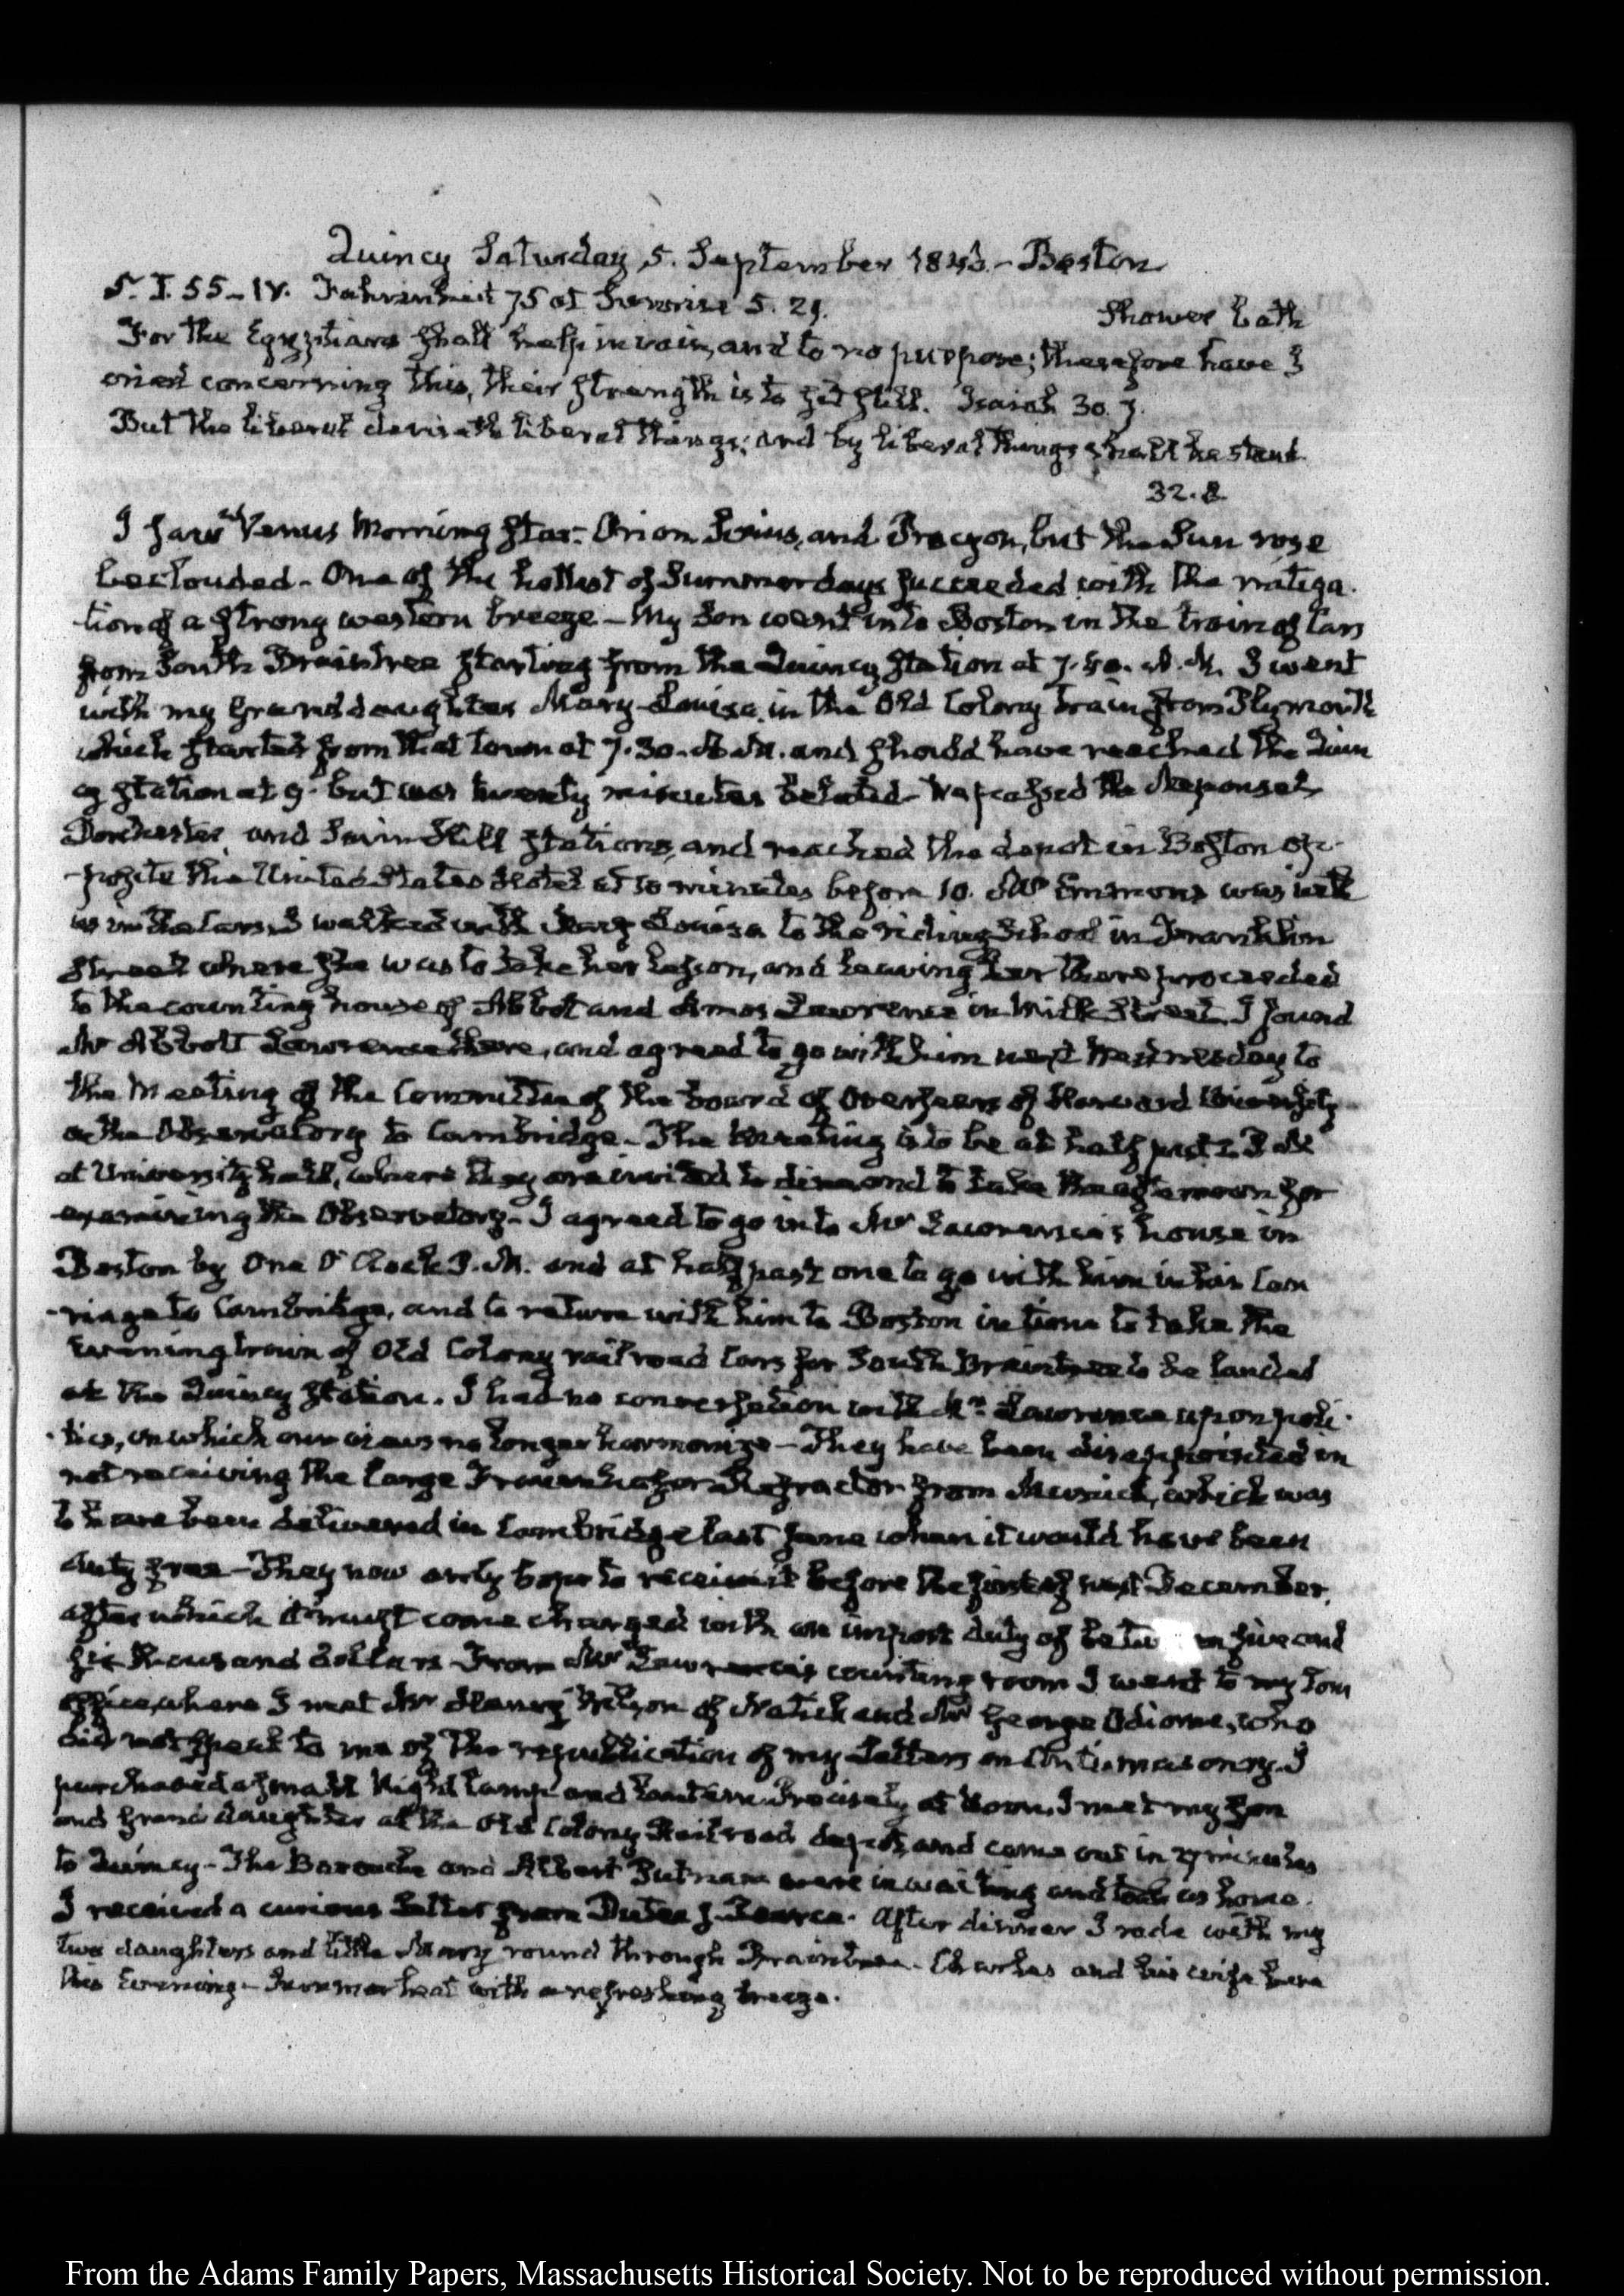 Quincy Saturday 5. September 1846.- Boston
5. I. 55-IV. Fahrenheit 75 at Sunrise 5. 29. Shower bath
For the Egyptians shall help in vain, and to no purpose; therefore have I
cried concerning this, their strength is to sit still. Isaiah 30. 7.
But the liberal deviseth liberal things; and by liberal things shall he stand.
32. 8.
I saw Venus Morning star- Orion Sirius, and Procyon, but the Sun rose
beclouded- One of the hottest of Summer days succeeded with the mitiga-
tion of a strong western breeze- My Son went into Boston in the train of Cars
from South Braintree starting from the Quincy station at 7.40. A.M. I went
with my Granddaughter Mary-Louisa in the Old Colony train from Plymouth
which started from that town at 7.30. A.M. and should have reached the Quin
cy station at 9. but was twenty minutes belated- We passed the Neponset,
Dorchester, and Savin Hill stations, and reached the depot in Boston op-
-posite the United States Hotel at 10 minutes before 10. Mr Emmons was with
us in the Cars. I walked with Mary Louisa to the riding School in Franklin
Street where she was to take her lesson, and leaving her there proceeded
to the counting house of Abbot and Amos Lawrence in Milk Street. I found
Mr Abbott Lawrence there, and agreed to go with him next Wednesday to
the Meeting of the Committee of the board of Overseers of Harvard University
on the Observatory to Cambridge- The meeting is to be at half past 2 P.M.
at University hall, where they are invited to dine and to take the afternoon for
examining the Observatory- I agreed to go in to Mr Lawrence's house in
Boston by One O'Clock P.M. and at half past one to go with him in his Car
-riage to Cambridge, and to return with him to Boston in time to take the
Evening train of Old Colony railroad Cars for South Braintree to be landed
at the Quincy station. I had no conversation with Mr. Lawrence upon poli-
-tics, on which our views no longer harmonize- They have been disappointed in
not receiving the large Fraunhofer Refractor from Munich, which was
to have been delivered in Cambridge last June when it would have been
duty free- They now only hope to receive it before the first of next December,
after which it must come charged with an import duty of between five and
six thousand dollars From Mr Lawrence's counting room I went to my Sons
office, where I met Mr Henry Wilson of Natick and Mr George Odiorne, who
did not speak to me of the republication of my Letters on Antimasonry. I
purchased a small Night lamp and lantern. Precisely at Noon, I met my Son
and Grand daughter at the Old Colony Railroad depot, and came out in 27 minutes
to Quincy- The Barouche and Albert Putnam were in waiting and took us home.
I received a curious Letter from Dutee J. Pearce. After dinner I rode with my
two daughters and little Mary round through Braintree- Charles and his wife here
this Evening- Summer heat with a refreshing breeze.
From the Adams Family Papers, Massachusetts Historical Society. Not to be reproduced without permission.